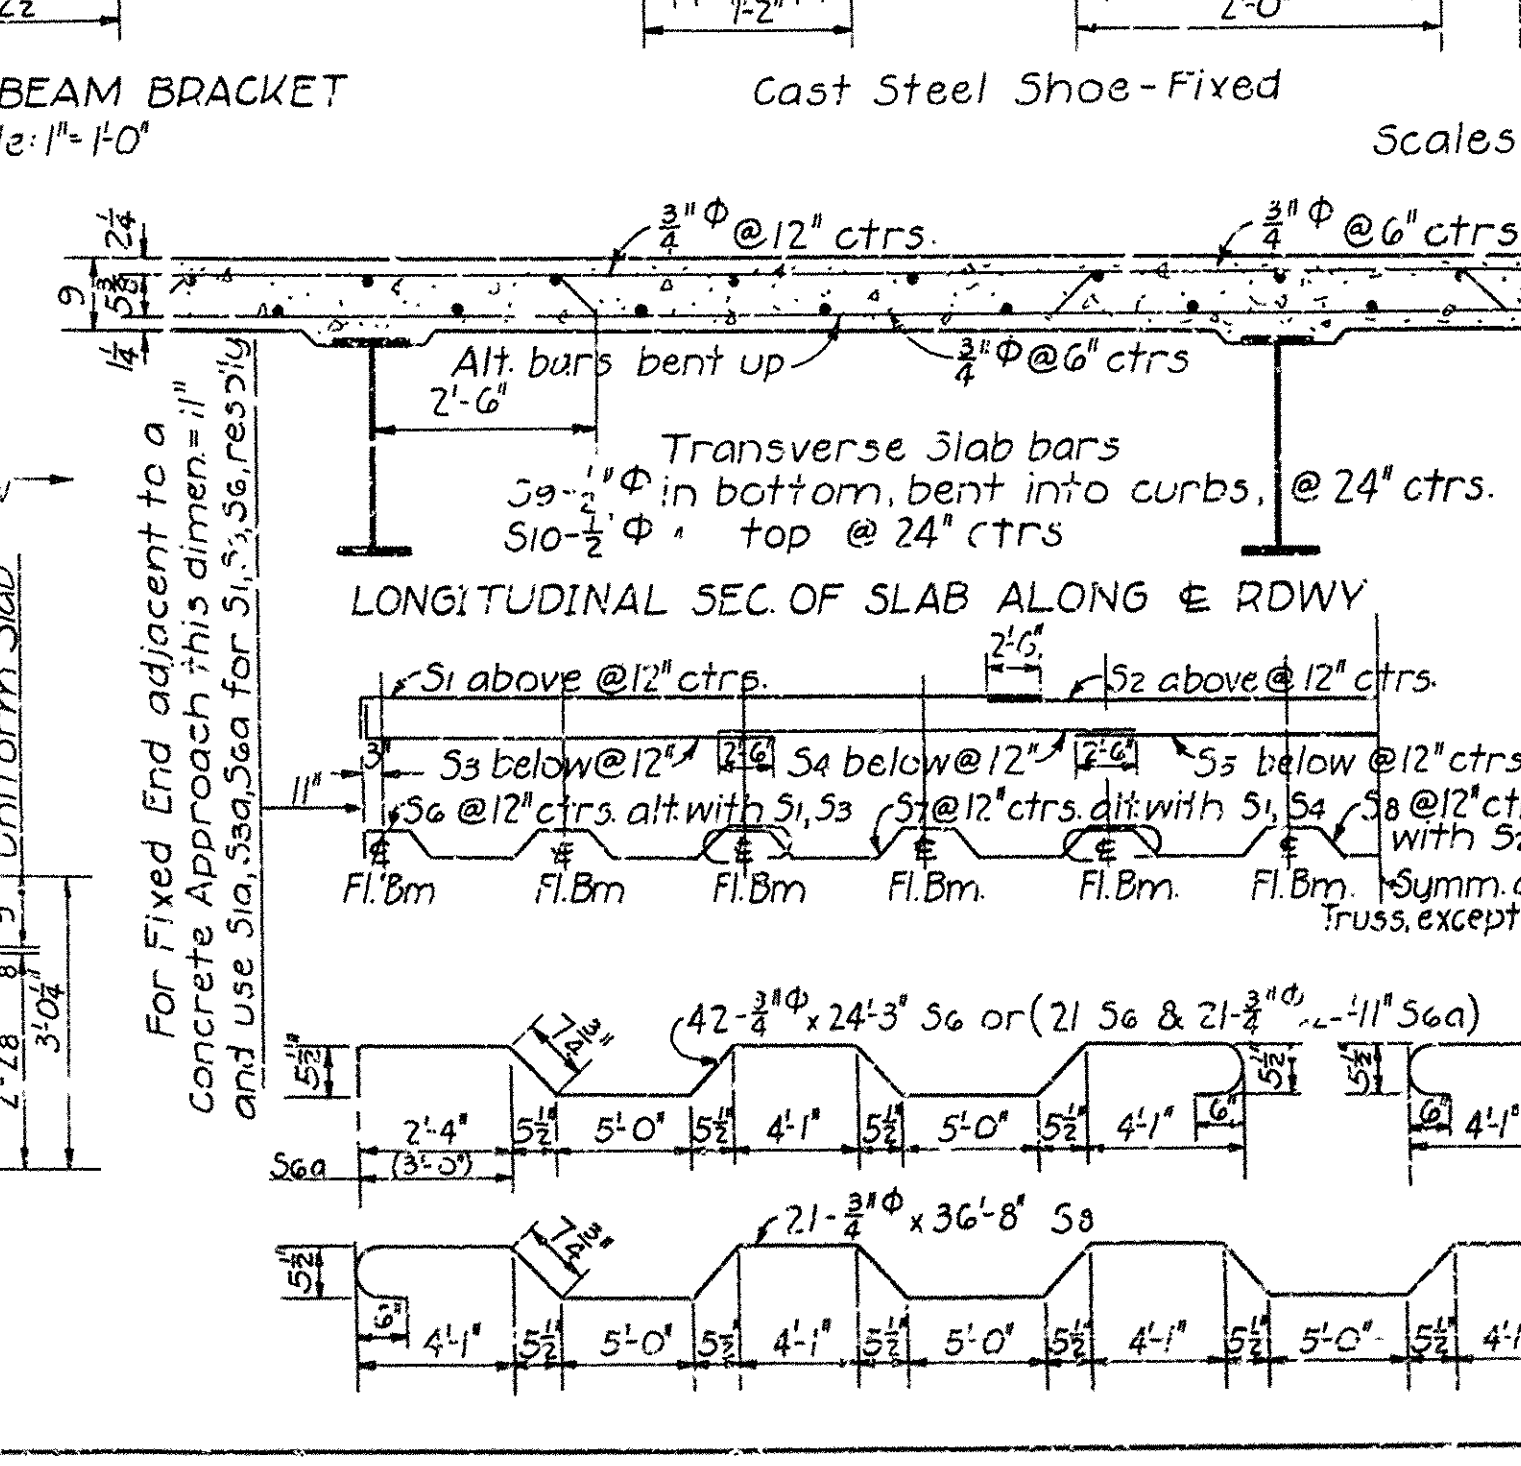 1'-2"
2'-0"
BEAM BRACKET
1"= 1'-0"
Cast Steel Shoe-Fixed
Scales
2 1/4
9
5 3/8
1 1/4
3/4"Φ @ 12" ctrs.
3/4"Φ @ 6" ctrs
Alt. bars bent up
3/4"Φ @ 6" ctrs
2'-6"
Transverse Slab bars
S9-1/2"Φ in bottom, bent into curbs, @ 24" ctrs.
S10-1/2"Φ " top @ 24" ctrs
LONGITUDINAL SEC. OF SLAB ALONG ℄ RDWY
For Fixed End adjacent to a
Concrete Approach this dimen.=11"
and use S1a, S3a, S6a for S1, S3, S6, resp'ly
2'-6"
S1 above @ 12" ctrs.
S2 above @ 12" ctrs.
3"
S3 below @ 12"
2'-6"
S4 below @ 12"
2'-6"
S5 below @ 12" ctrs
11"
S6 @ 12" ctrs. alt. with S1, S3
S7 @ 12" ctrs. alt. with S1, S4
S8 @ 12"
with
℄ ℄ ℄ ℄ ℄ ℄
Fl. Bm Fl. Bm Fl. Bm Fl. Bm. Fl. Bm. Fl. Bm.
Symm.
Truss, except
3'-0 1/4"
42-3/4"Φ x 24'-3" S6 or (21 S6 & 21-3/4"Φ -11" S6a)
5 1/2"
7 3/4"
5 1/2"
5 1/2"
6"
6"
2'-4" 5 1/2" 5'-0" 5 1/2" 4'-1" 5 1/2" 5'-0" 5 1/2" 4'-1"
4'-1"
S6a (3'-0")
21-3/4"Φ x 36'-8" S8
5 1/2"
7 3/4"
6"
4'-1" 5 1/2" 5'-0" 5 1/2" 4'-1" 5 1/2" 5'-0" 5 1/2" 4'-1" 5 1/2" 5'-0" 5 1/2"